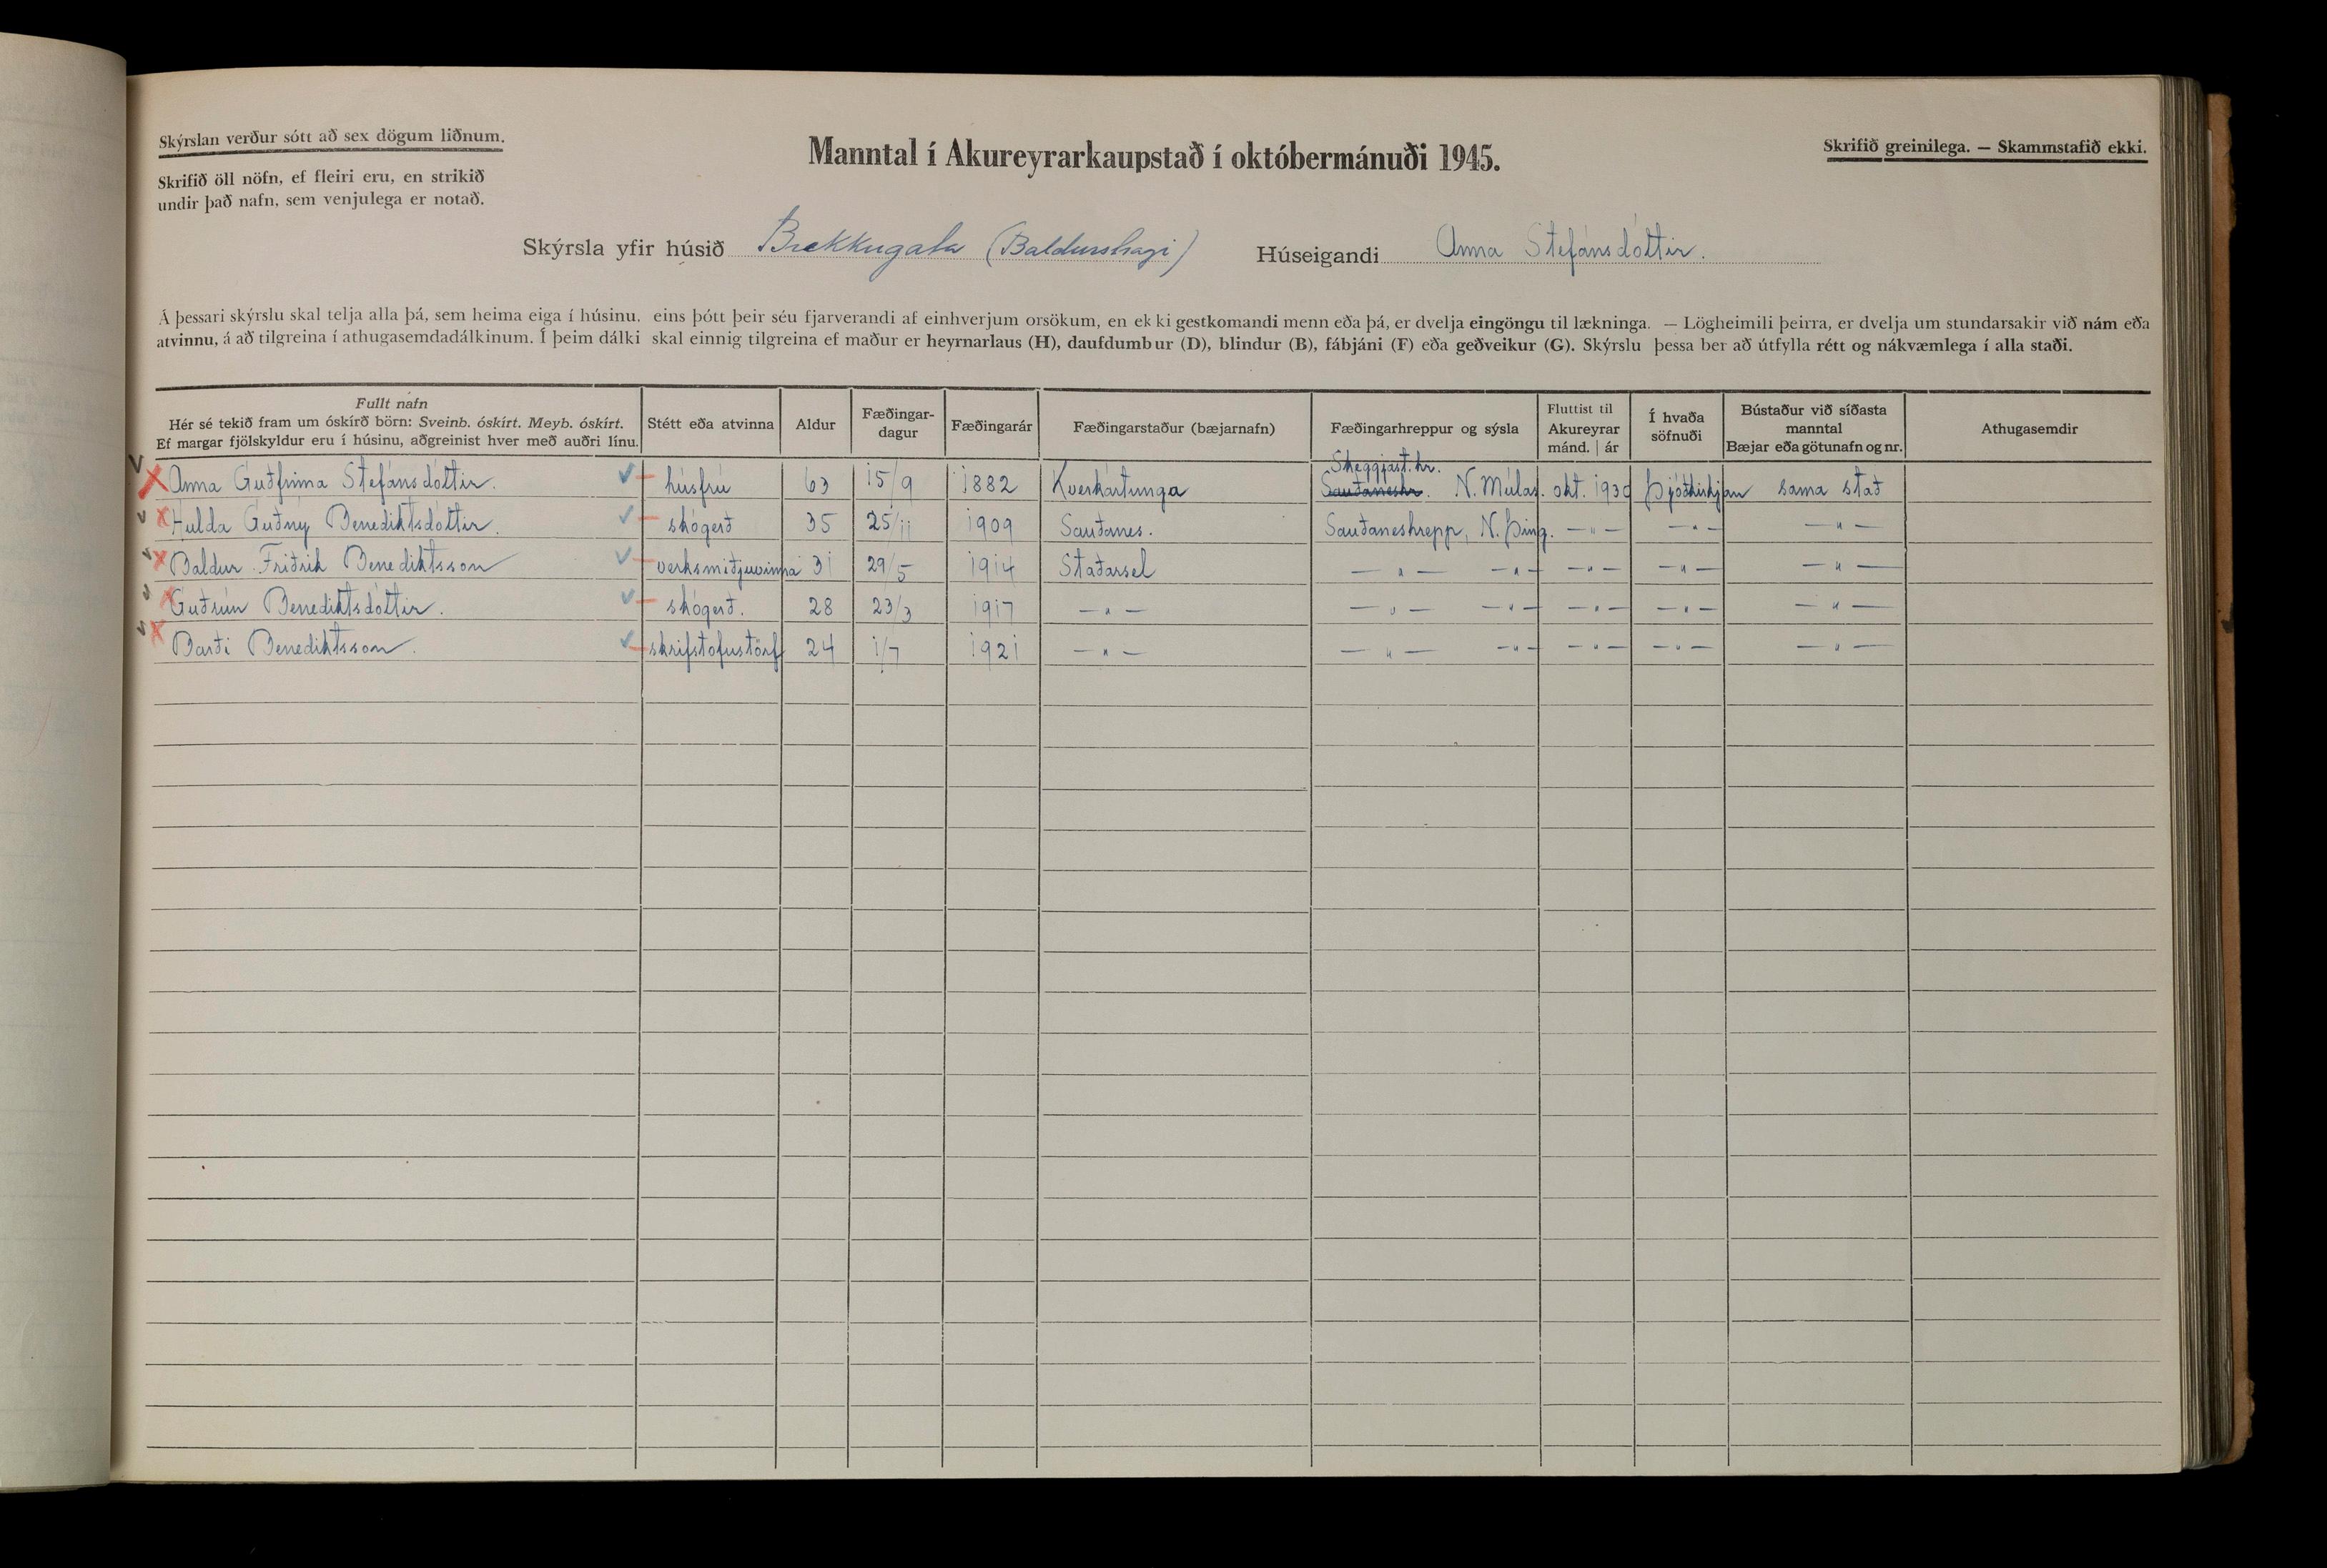 Skýrslan verður sótt að sex dögum liðnum.
Skrifið öll nöfn, ef fleiri eru, en strikið
undir það nafn, sem venjulega er notað.
Manntal í Akureyrarkaupstað í októbermánuði 1945.
Skrifið greinilega. — Skammstafið ekki.
Skýrsla yfir húsið Brekkugata (Baldurshagi) Húseigandi Anna Stefánsdóttir.
Á þessari skýrslu skal telja alla þá, sem heima eiga í húsinu, eins þótt þeir séu fjarverandi af einhverjum orsökum, en ekki gestkomandi menn eða þá, er dvelja eingöngu til lækninga. — Lögheimili þeirra, er dvelja um stundarsakir við nám eða
atvinnu, á að tilgreina í athugasemdadálkinum. Í þeim dálki skal einnig tilgreina ef maður er heyrnarlaus (H), daufdumbur (D), blindur (B), fábjáni (F) eða geðveikur (G). Skýrslu þessa ber að útfylla rétt og nákvæmlega í alla staði.
Fullt nafn
Hér sé tekið fram um óskírð börn: Sveinb. óskírt. Meyb. óskírt.
Ef margar fjölskyldur eru í húsinu, aðgreinist hver með auðri línu.
Stétt eða atvinna
Aldur
Fæðingar-
dagur
Fæðingarár
Fæðingarstaður (bæjarnafn)
Fæðingarhreppur og sýsla
Fluttist til
Akureyrar
mánd. | ár
Í hvaða
söfnuði
Bústaður við síðasta
manntal
Bæjar eða götunafn og nr.
Athugasemdir
Skeggjast.hr.
Anna Guðfinna Stefánsdóttir. húsfrú 63 15/9 1882 Kverkártunga Sauðaneshr. N. Múlas. okt. 1930 Þjóðkirkjan sama stað
Hulda Guðný Benediktsdóttir. skógerð 35 25/11 1909 Sauðanes. Sauðaneshrepp, N. Þing. —"— —"— —"—
Baldur Friðrik Benediktsson verksmiðjuvinna 31 29/5 1914 Staðarsel —"— —"— —"— —"— —"—
Guðrún Benediktsdóttir. skógerð. 28 23/3 1917 —"— —"— —"— —"— —"— —"—
Barði Benediktsson. skrifstofustörf 24 1/7 1921 —"— —"— —"— —"— —"— —"—